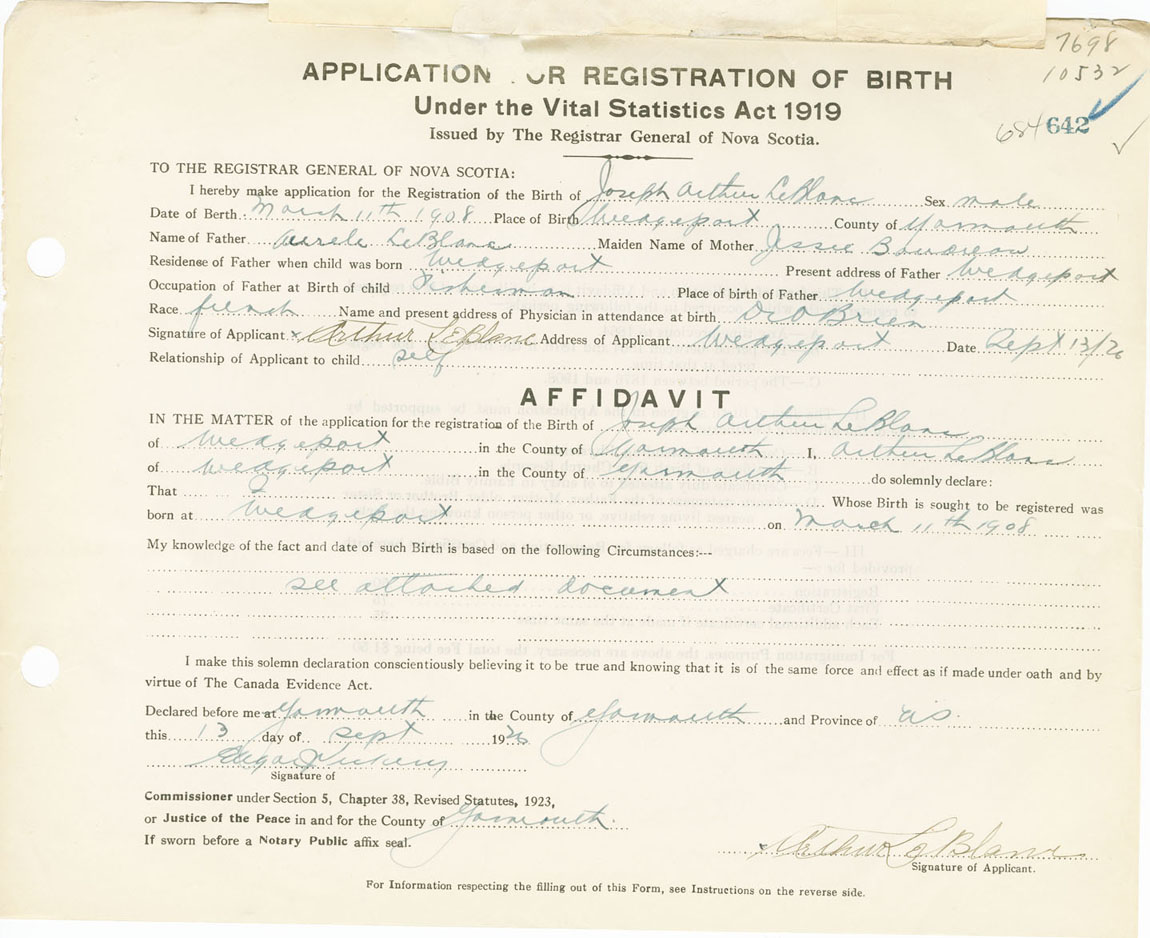 7698
10532
684 642
APPLICATION OR REGISTRATION OF BIRTH
Under the Vital Statistics Act 1919
Issued by The Registrar General of Nova Scotia.
TO THE REGISTRAR GENERAL OF NOVA SCOTIA:
I hereby make application for the Registration of the Birth of Joseph Arthur LeBlanc Sex male
Date of Berth March 11th 1908 Place of Birth Wedgeport County of Yarmouth
Name of Father Aurele LeBlanc Maiden Name of Mother Jessie Boudreau
Residense of Father when child was born Wedgeport Present address of Father Wedgeport
Occupation of Father at Birth of child Fisherman Place of birth of Father Wedgeport
Race french Name and present address of Physician in attendance at birth Dr O Brien
Signature of Applicant x Arthur LeBlanc Address of Applicant Wedgeport Date Sept 13/26
Relationship of Applicant to child self
AFFIDAVIT
IN THE MATTER of the application for the registration of the Birth of Joseph Arthur LeBlanc
of Wedgeport in the County of Yarmouth I, Arthur LeBlanc
of Wedgeport in the County of Yarmouth do solemnly declare:
That I Whose Birth is sought to be registered was
born at Wedgeport on March 11th 1908
My knowledge of the fact and date of such Birth is based on the following Circumstances:---
see attached document
I make this solemn declaration conscientiously believing it to be true and knowing that it is of the same force and effect as if made under oath and by
virtue of The Canada Evidence Act.
Declared before me at Yarmouth in the County of Yarmouth and Province of NS.
this 13 day of Sept 1926
Signature of
Commissioner under Section 5, Chapter 38, Revised Statutes, 1923,
or Justice of the Peace in and for the County of Yarmouth.
If sworn before a Notary Public affix seal.
x Arthur LeBlanc
Signature of Applicant.
For Information respecting the filling out of this Form, see Instructions on the reverse side.